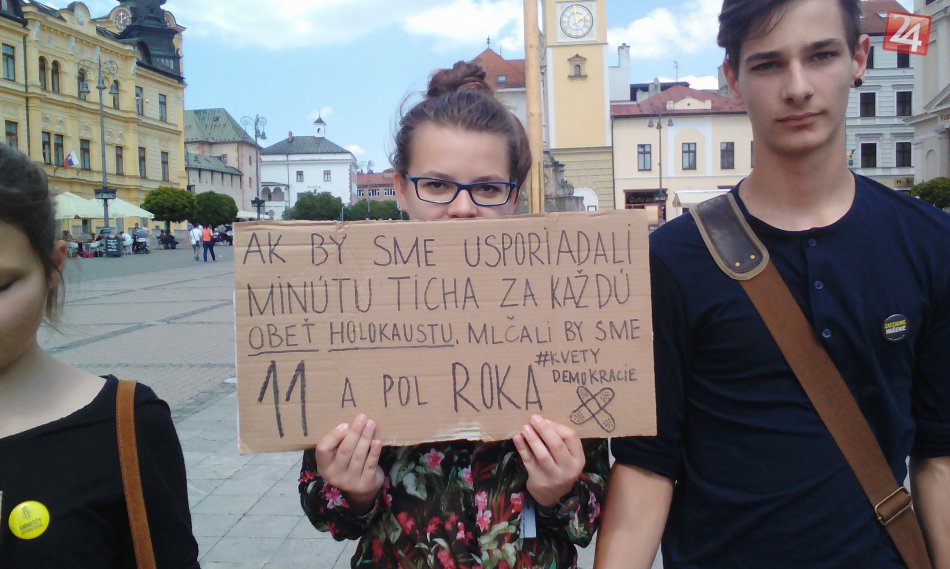 24
AK BY SME USPORIADALI
MINÚTU TICHA ZA KAŽDÚ
OBEŤ HOLOKAUSTU, MLČALI BY SME
11 A POL ROKA
#KVETY
DEMOKRACIE
ZASTAVME
AMNESTY